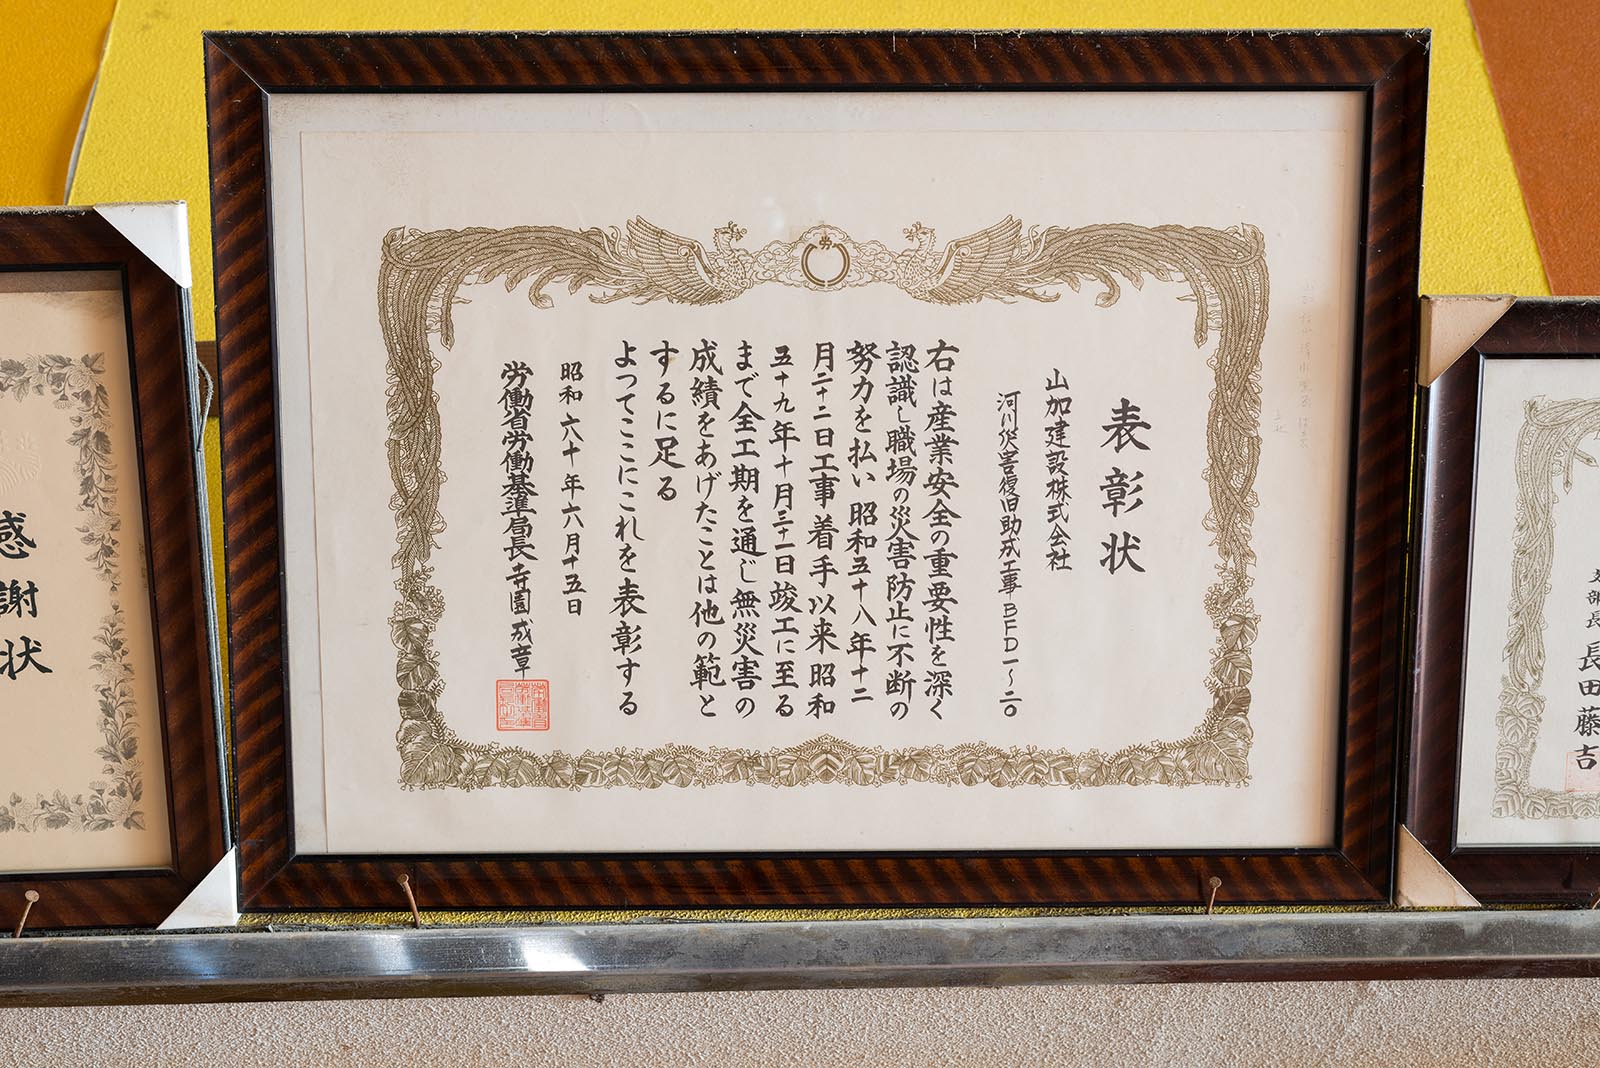 表彰状
山加建設株式会社
河川災害復旧助成工事BFD一〜二〇
右は産業安全の重要性を深く
認識し職場の災害防止に不断の
努力を払い昭和五十八年十二
月二十二日工事着手以来昭和
五十九年十月三十一日竣工に至る
まで全工期を通じ無災害の
成績をあげたことは他の範と
するに足る
よってここにこれを表彰する
昭和六十年六月十五日
労働省労働基準局長寺園成章
労
感謝状
支部長 長田藤吉